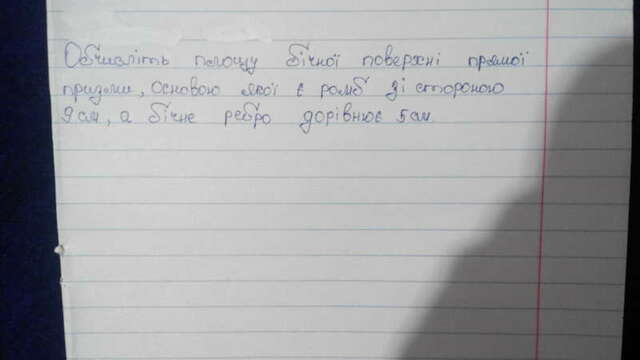 Обчисліть площу бічної поверхні прямої
призми, основою якої є ромб зі стороною
9 см, а бічне ребро дорівнює 5 см.